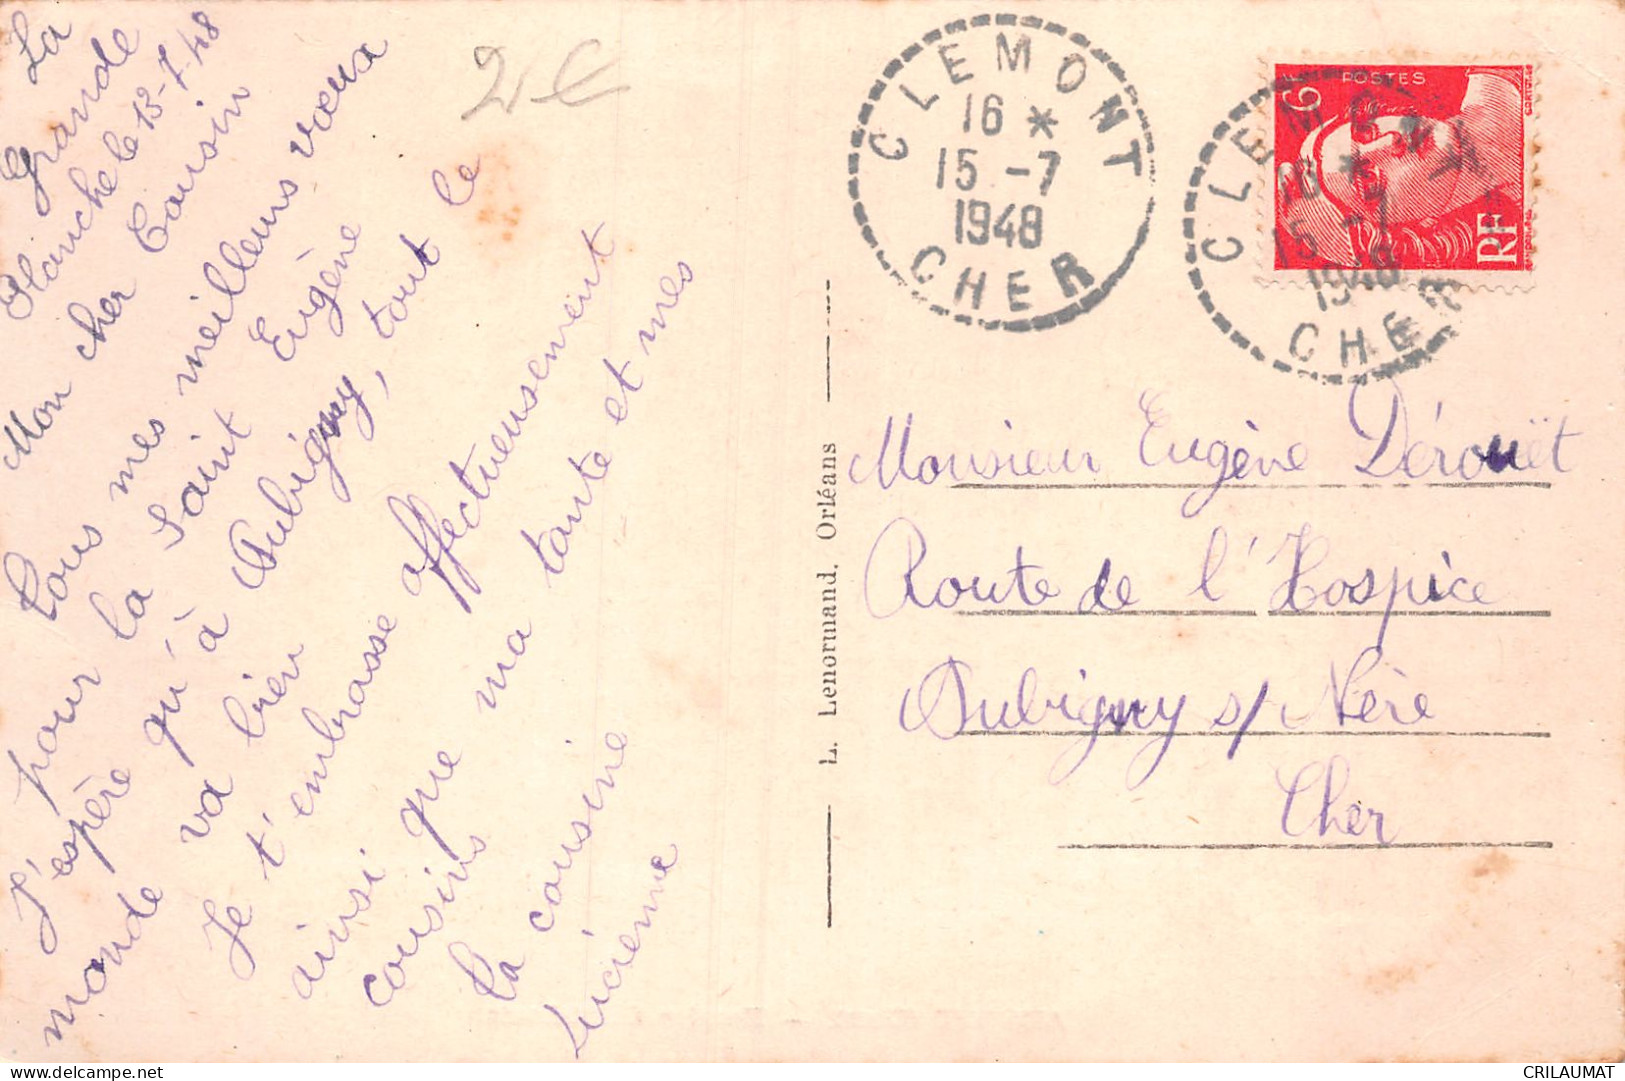 La
Grande
Planche le 13-7-48
Mon cher Cousin
Tous mes meilleurs vœux
pour la Saint Eugène
J'espère qu'à Aubigny, tout le
monde va bien
Je t'embrasse affectueusement
ainsi que ma tante et mes
cousins
Ta cousine
Lucienne
2 €
L. Lenormand, Orléans
CLEMONT
16 *
15 -7
1948
CHER
CLEMONT
16 *
15 -7
1948
CHER
POSTES
6F
RF
Monsieur Eugène Dérouët
Route de l'Hospice
Aubigny s/ Nère
Cher
CRILAUMAT